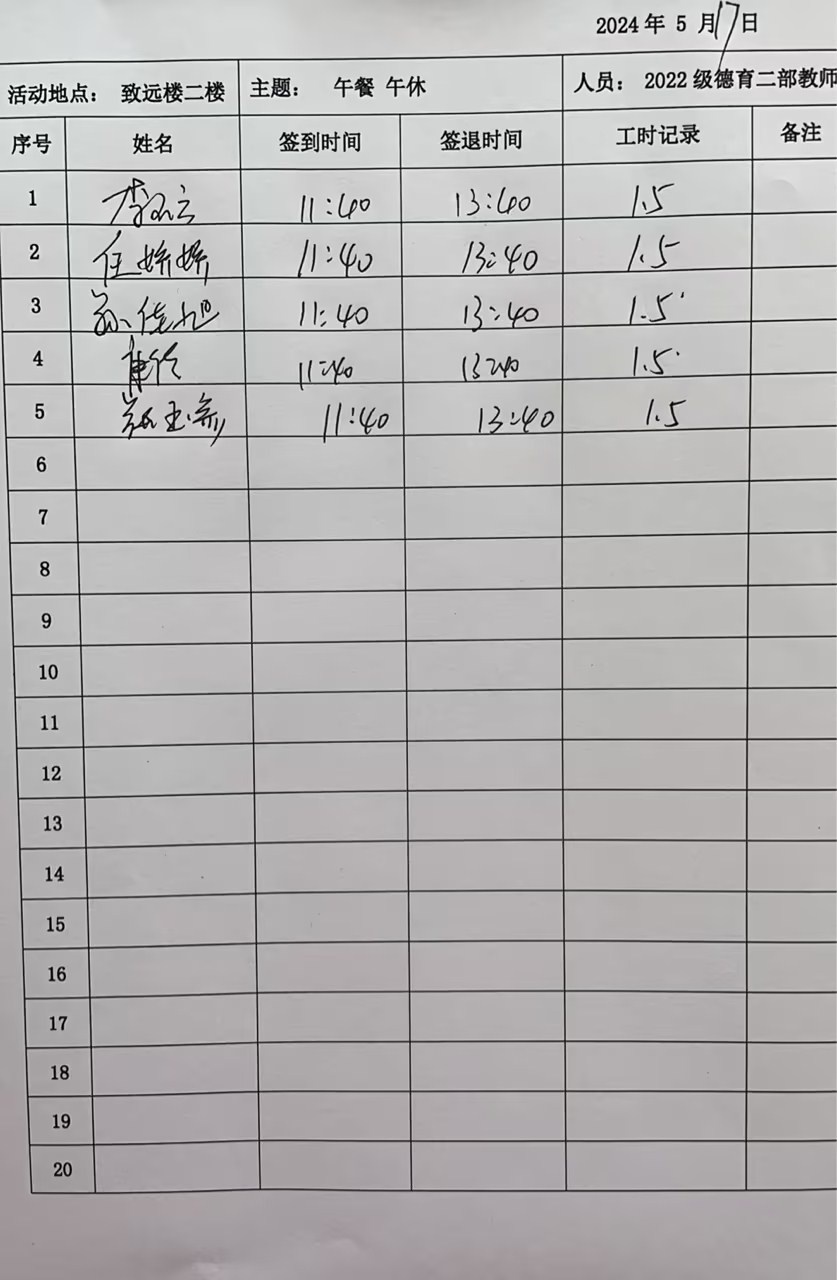 2024 年 5 月 17 日
活动地点： 致远楼二楼 主题： 午餐 午休 人员： 2022 级德育二部教师
序号 姓名 签到时间 签退时间 工时记录 备注
1 11:40 13:40 1.5
2 任娇娇 11:40 13:40 1.5
3 11:40 13:40 1.5
4 11:40 13:40 1.5
5 11:40 13:40 1.5
6
7
8
9
10
11
12
13
14
15
16
17
18
19
20